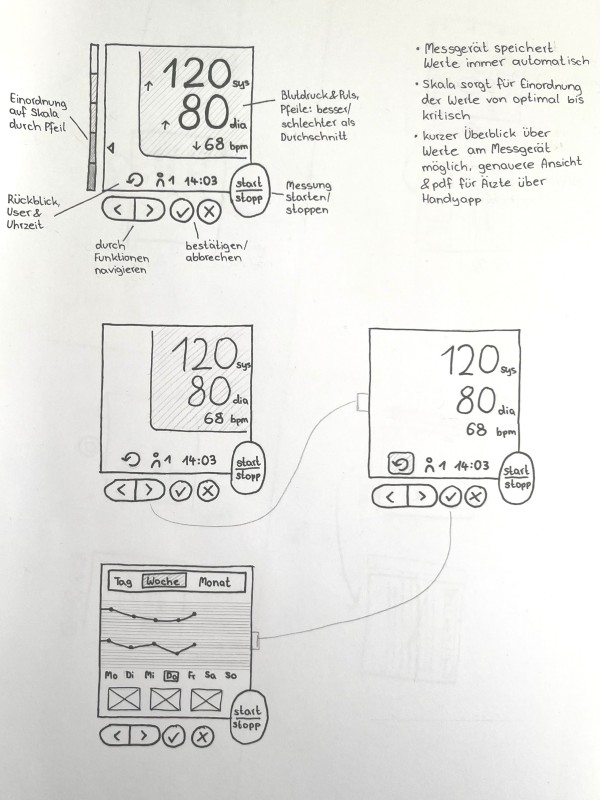 • Messgerät speichert
Werte immer automatisch
• Skala sorgt für Einordnung
der Werte von optimal bis
kritisch
• kurzer Überblick über
Werte am Messgerät
möglich, genauere Ansicht
& pdf für Ärzte über
Handyapp
Einordnung
auf Skala
durch Pfeil
120 sys
↑ 80 dia
↓ 68 bpm
1 14:03
start
stopp
Blutdruck & Puls,
Pfeile: besser/
schlechter als
Durchschnitt
Messung
starten/
stoppen
Rückblick,
User &
Uhrzeit
durch
Funktionen
navigieren
bestätigen/
abbrechen
120 sys
80 dia
68 bpm
1 14:03
start
stopp
120 sys
80 dia
68 bpm
1 14:03
start
stopp
Tag Woche Monat
Mo Di Mi Do Fr Sa So
start
stopp